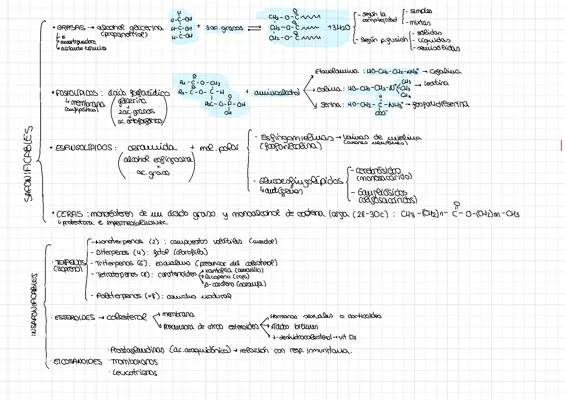 SAPONIFICABLES
• GRASAS → alcohol glicerina + 3 ac. grasos ⇌ + 3H₂O
(propanotriol)
- según la complejidad - simples
- mixtas
- según p. fusión - sólidas
- líquidas
- semisólidas
CH₂-O-C
CH-O-C
CH₂-O-C
• FOSFOLÍPIDOS: ácido fosfatídico + aminoalcohol
membrana
glicerina
+
2 ac. grasos
+
ac. ortofosfórico
Etanolamina: HO-CH₂-CH₂-NH₃⁺ → cefalina
colina: HO-CH₂-CH₂-N⁺ → lecitina
serina: HO-CH₂-C-NH₃⁺ → fosfatidilserina
• ESFINGOLÍPIDOS: ceramida + mol. polar
(alcohol esfingosina
+
ac. graso)
- Esfingomielinas → vainas de mielina
(fosforilcolina)
- Glucoesfingolípidos
- cerebrósidos
(monosacárido)
- Gangliósidos
(oligosacáridos)
• CERAS: monoésteres de un ácido graso y monoalcohol de cadena larga (28-30C): CH₃-(CH₂)n-C-O-(CH₂)m-CH₃
protectora e impermeabilizante
INSAPONIFICABLES
• TERPENOS
(isopreno)
- Monoterpenos (2): compuestos volátiles (mentol)
- Diterpenos (4): fitol (clorofila)
- Triterpenos (6): escualeno (precursor del colesterol)
- Tetraterpenos (8): carotenoides → xantofila (amarilla)
licopeno (rojo)
β-caroteno (naranja)
- Politerpenos (+8): caucho natural
• ESTEROIDES → colesterol
membrana
Precursora de otros esteroides
Hormonas sexuales o corticoides
Ácidos biliares
7-deshidrocolesterol → vit D₃
• EICOSANOIDES
Prostaglandinas (ac. araquidónico) → relación con resp. inmunitaria.
Tromboxanos
Leucotrienos